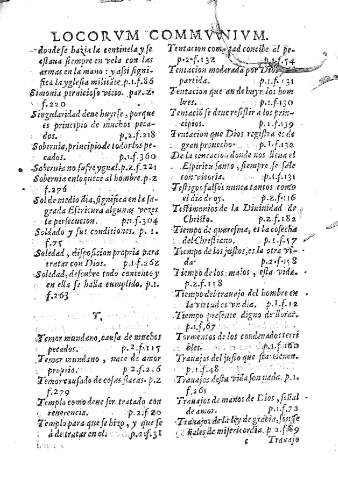 LOCORVM COMMVNIVM.
donde se hazia la centinela y se
estaua siempre en vela con las
armas en la mano: y assi signifi-
ca la yglesia militãte p.1.f.86
Simonia pernicioso vicio. par.2.
f.220
Singularidad deue huyrse, porque
es principio de muchos peca-
dos. p.2.f.218
Soberuia, principio de todos los pe-
cados. p.1.f.360
Soberuia no sufre ygual. p.2.f.221
Soberuia enloquece al hombre. p.2
f.276
Sol de medio dia, significa en la sa-
grada Escritura algunas vezes
la persecucion. p.1.f.304
Soldado y sus condiciones. p.1.
f.75
Soledad, disposicion propria para
tratar con Dios. p.1.f.262
Soledad, descubre todo contento y
en ella se halla cumplido. p.1.
f.263
T.
Temor mundano, causa de muchos
pecados. p.2.f.215
Temor mundano, nace de amor
proprio. p.2.f.206
Temor causado de cosas flacas. p.2
f.279
Templo como deue ser tratado con
reuerencia. p.2.f.20
Templo para que se hizo, y que se
à de tratar en el. p.2.f.31
Tentacion
p.2.f.132 f.54
Tentacion moderada por Dios
partida. p.1.f.131
Tentacion que an de huyr los hom
bres. p.1.f.130
Tentaciõ se deue resistir a los prin-
cipios. p.1.f.139
Tentacion que Dios registra es de
gran prouecho. p.1.f.130
De la tentacion donde nos lleua el
Espiritu santo, siempre se sale
con vitoria. p.1.f.131
Testigos falsos nunca tantos como
el dia de oy. p.2.f.116
Testimonios de la Diuinidad de
Christo. p.2.f.182
Tiempo de quaresma, es la cosecha
del Christiano. p.1.f.57
Tiempo de los justos, es la otra vi-
da. p.2.f.158
Tiempo de los malos, esta vida.
p.2.f.158
Tiempo del trabajo del hombre en
la virtud es vn dia. p.1.f.12
Tiempo presente digno de llorar.
p.1.f.67
Tormentos de los condenados terri
bles. p.1.f.180
Trabajos del justo que
p.1.f.48
Trabajos desta vida son nada. p.1.
f.261
Trabajos de manos de Dios, señal
de amor. p.1.f.73
Trabajos de la ley de gracia, son se
ñales de misericordia. p.2.f.89
c Trabajo